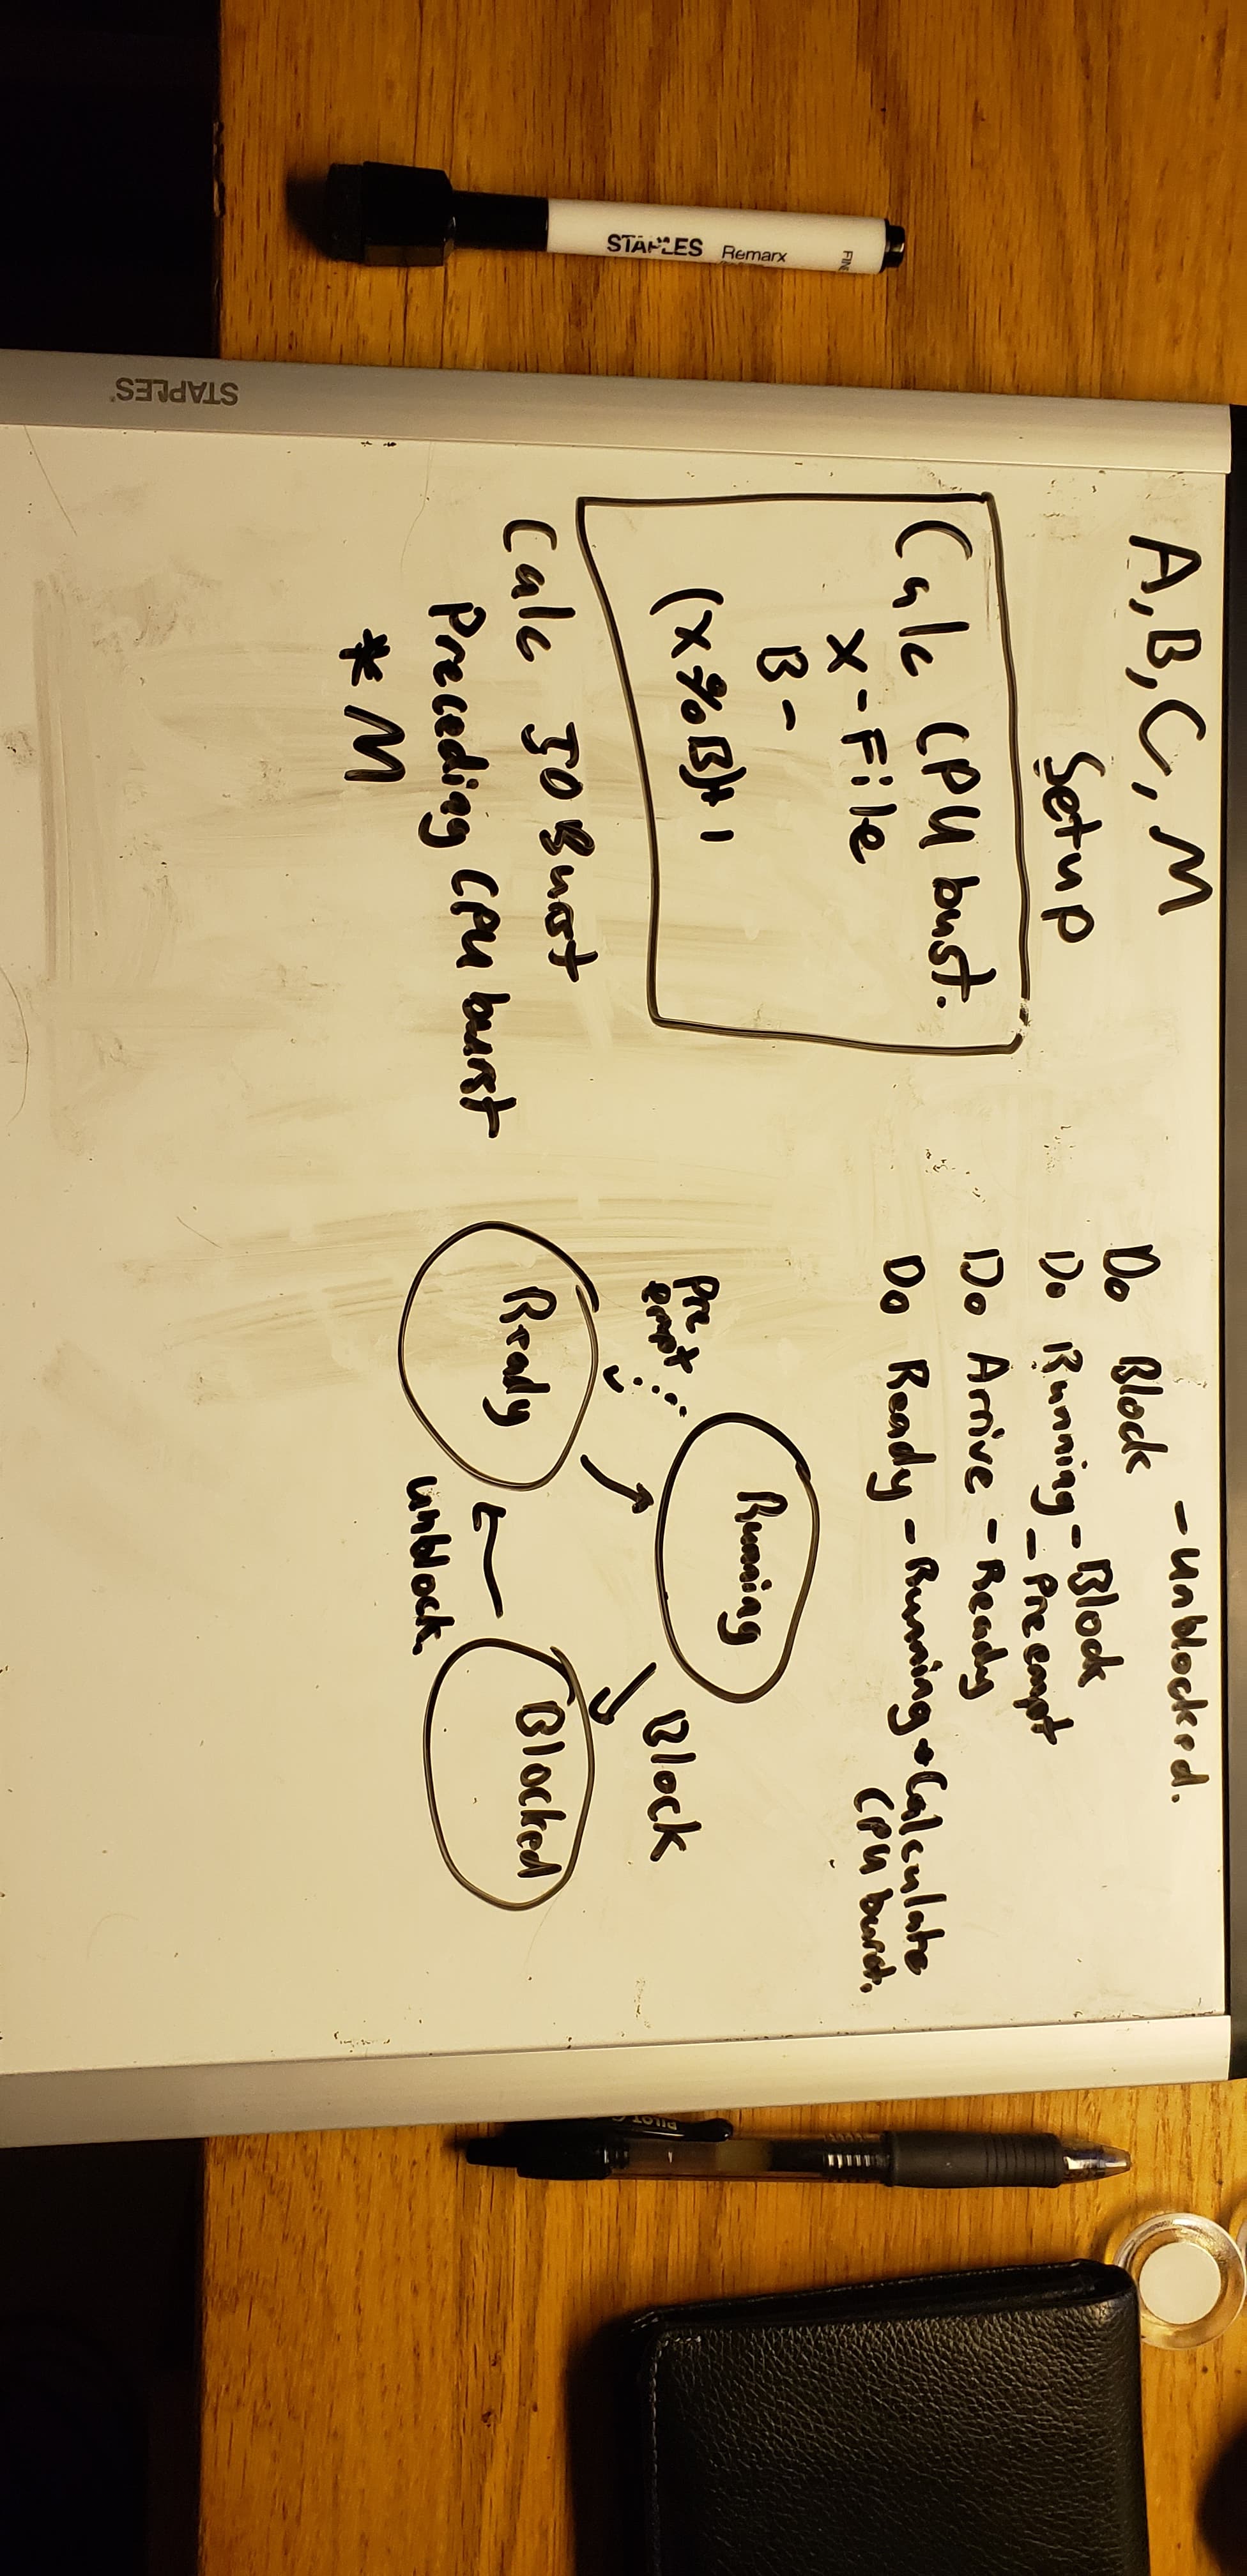 A, B, C, M
Setup
Calc CPU bust.
X - File
B -
(X % B) + 1
Calc IO Burst
Preceding CPU burst
* M
- Unblocked.
Do Block
Do Running - Block
- Preempt
Do Arrive - Ready
Do Ready - Running → Calculate
CPU burst.
Running
Pre
empt
Block
Ready
Blocked
unblock.
FINE
STAPLES Remarx
STAPLES